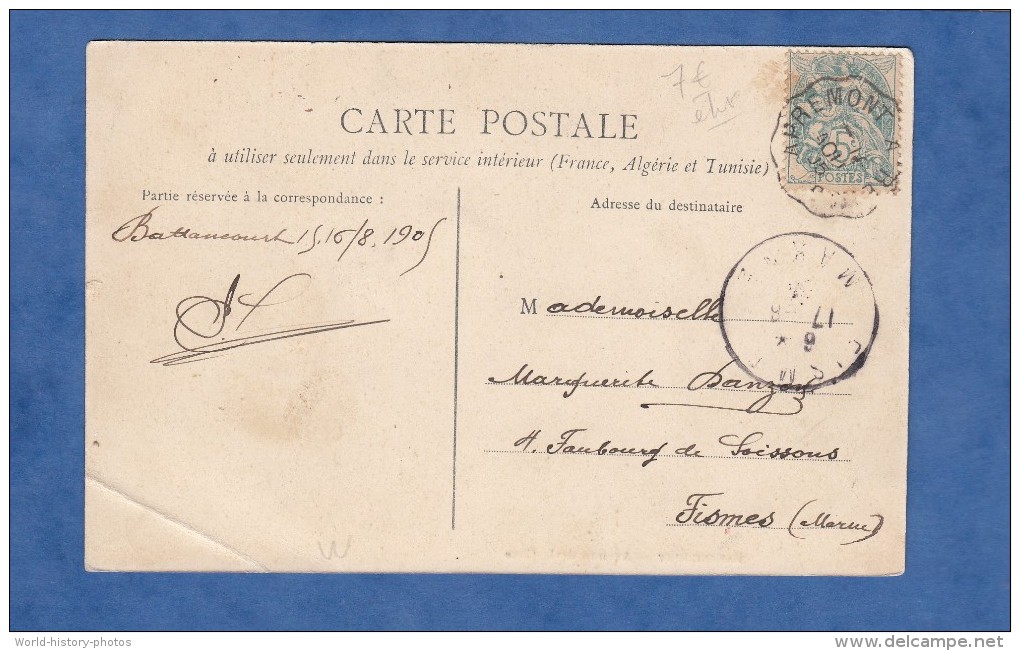 7€
CARTE POSTALE
à utiliser seulement dans le service intérieur (France, Algérie et Tunisie)
Partie réservée à la correspondance :
Adresse du destinataire
5
POSTES
APREMONT A
Battancourt 15.16/8.1905
MARNE
17
8
Mademoiselle
Marguerite
4. Faubourg de Soissons
Fismes (Marne)
World-history-photos
delcampe.net